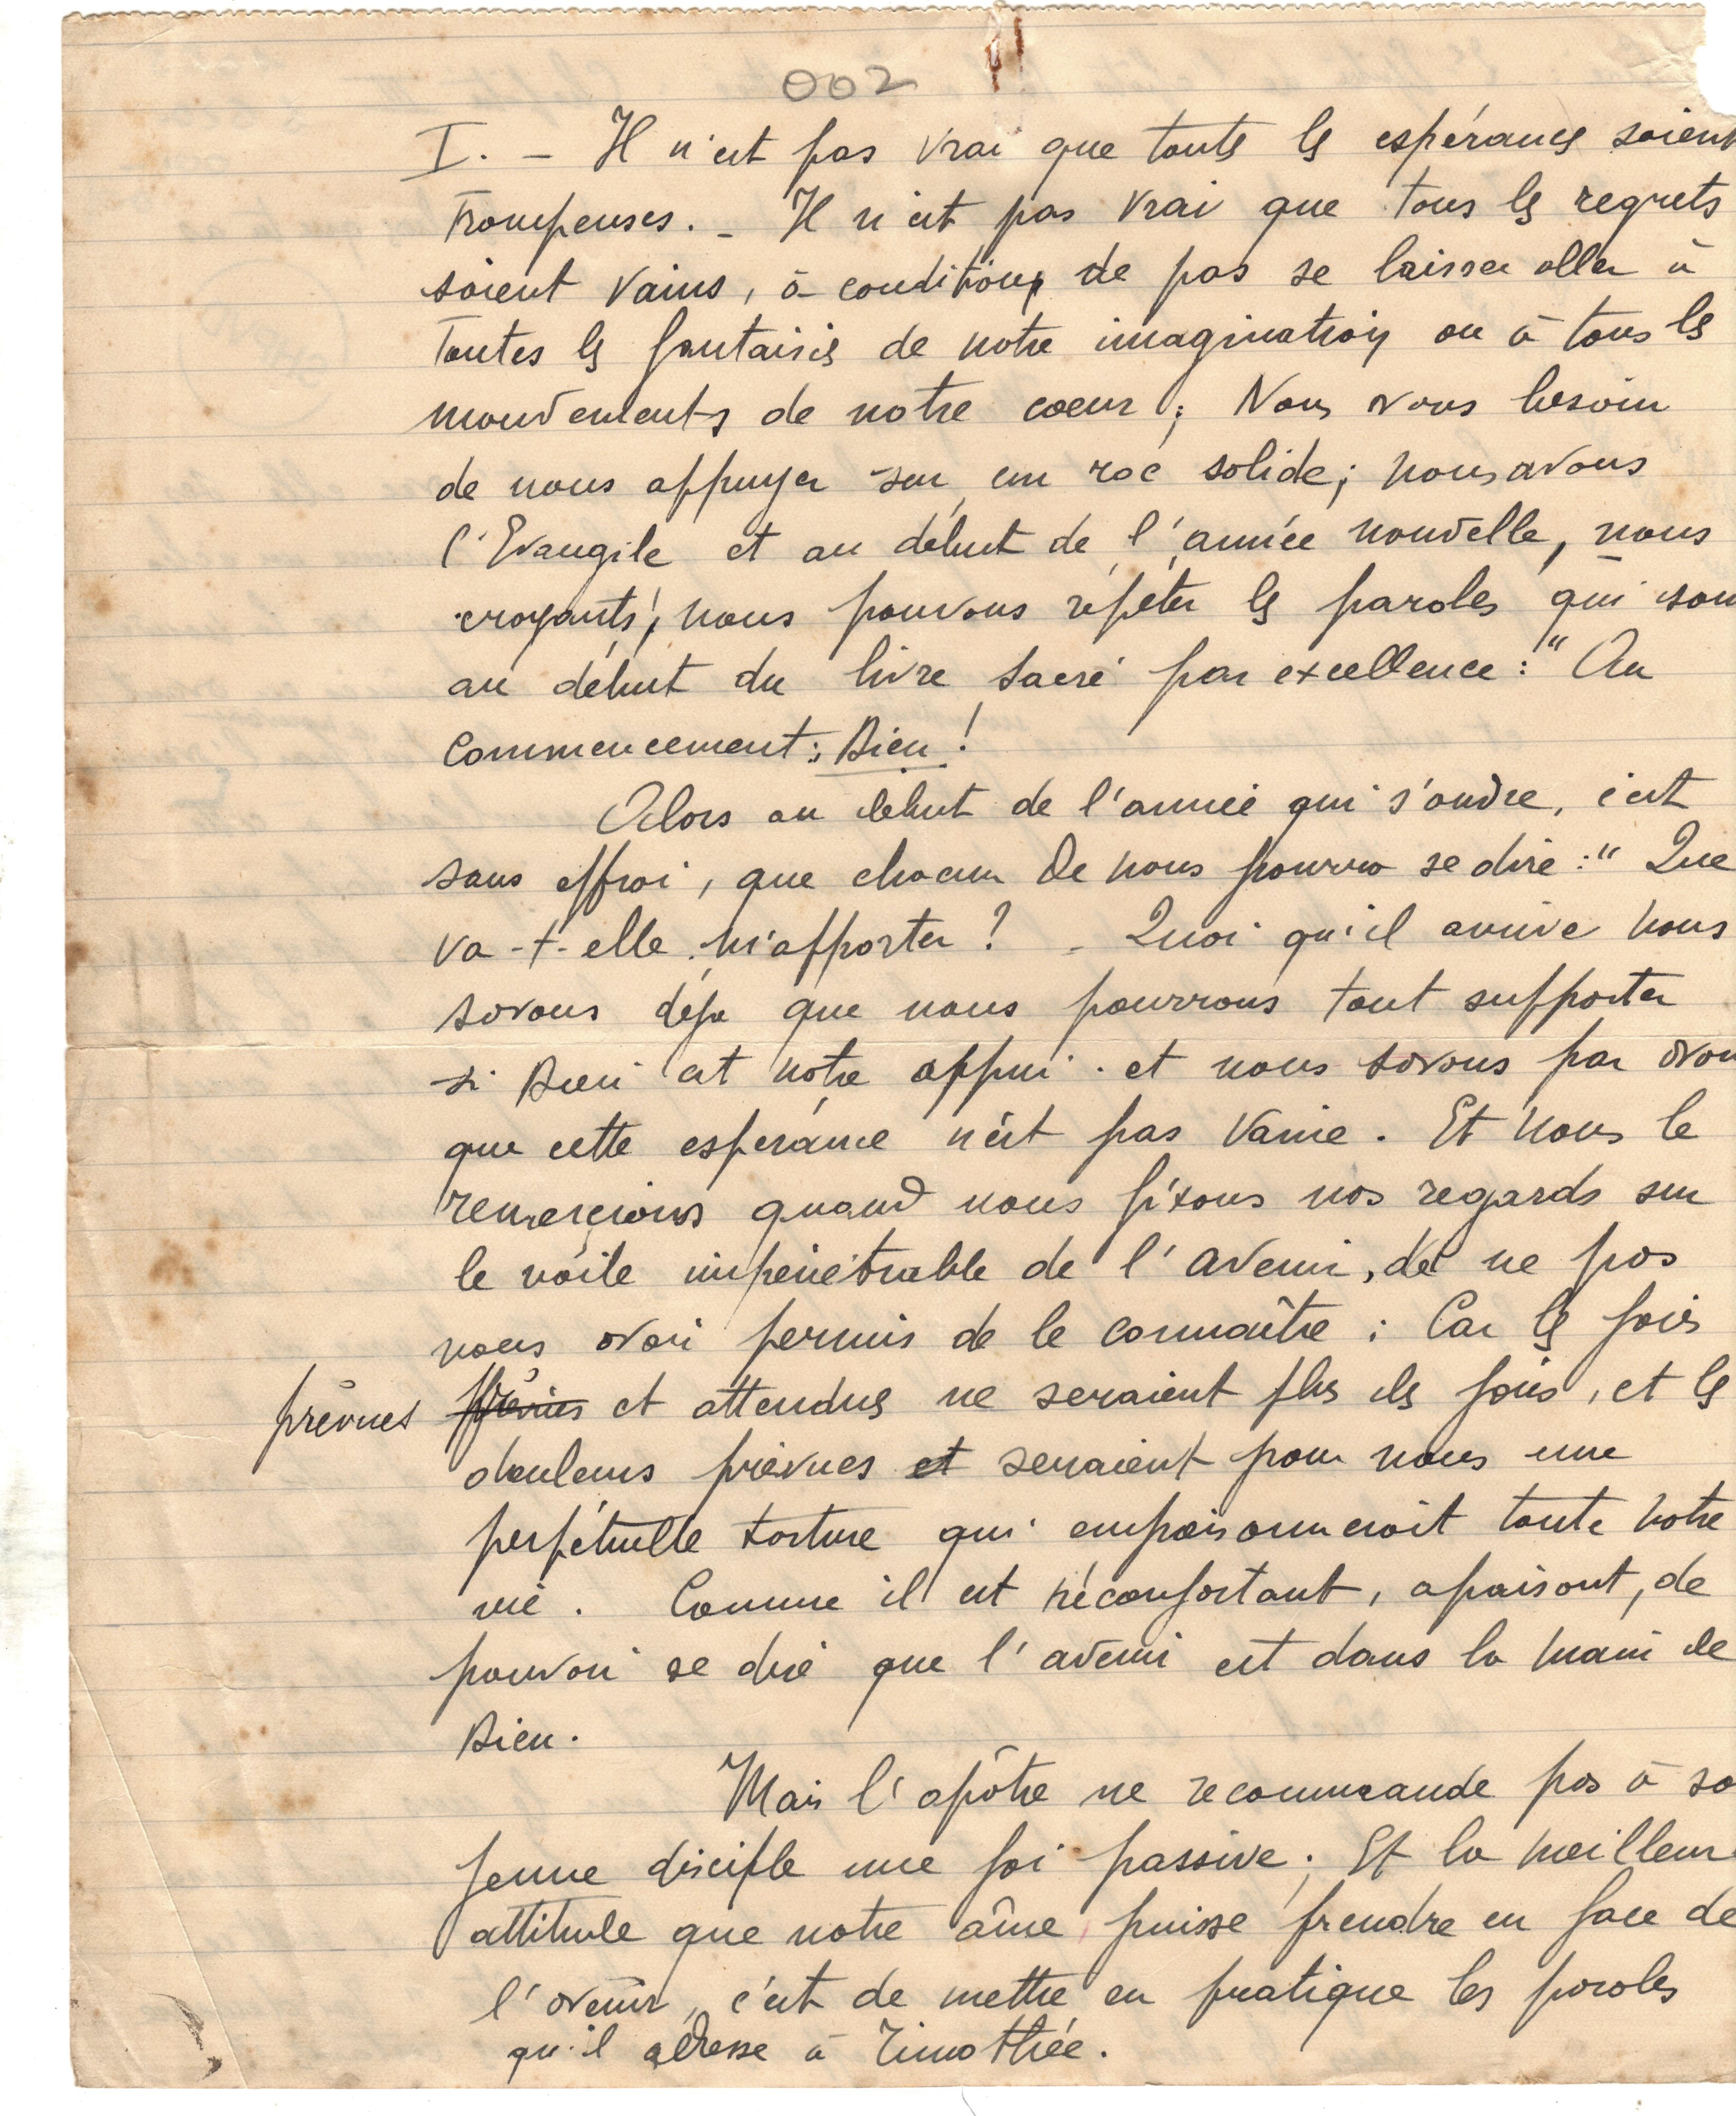 002
I. - Il n'est pas vrai que toutes les espérances soient
trompeuses. - Il n'est pas vrai que tous les regrets
soient vains, à condition de pas se laisser aller à
toutes les fantaisies de notre imagination ou à tous les
mouvements de notre coeur ; Nous avons besoin
de nous appuyer sur un roc solide ; nous avons
l'Evangile et au début de l'année nouvelle, nous
croyants, nous pouvons répéter les paroles qui son
au début du livre sacré par excellence : " Au
Commencement : Dieu !
Alors au début de l'année qui s'ouvre, c'est
sans effroi, que chacun de nous pourra se dire : " Que
va-t-elle m'apporter ? - Quoi qu'il arrive nous
savons déjà que nous pourrons tout supporter
si Dieu est notre appui. et nous savons par avan
que cette espérance n'est pas vaine. Et nous le
remercions quand nous fixons nos regards sur
le voile impénétrable de l'avenir, de ne pas
nous avoir permis de le connaître ; Car les joies
prévues et attendues ne seraient plus des joies, et les
douleurs prévues et seraient pour nous une
perpétuelle torture qui empoisonnerait toute notre
vie. Comme il est réconfortant, apaisant, de
pouvoir se dire que l'avenir est dans la main de
Dieu.
Mais l'apôtre ne recommande pas à so
jeune disciple une foi passive ; Et la meilleure
attitude que notre âme puisse prendre en face de
l'avenir, c'est de mettre en pratique les paroles
qu'il adresse à Timothée.